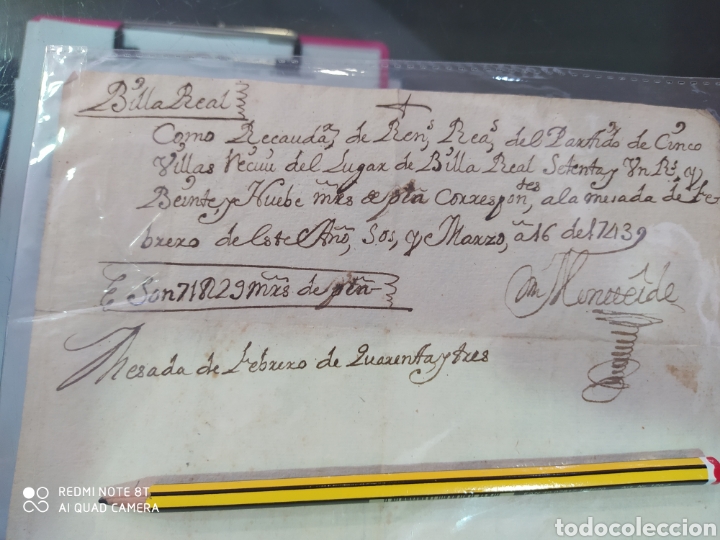 Billa Real
Como Recauda.r de Ren.s Rea.s del Partido de Cinco
Villas Reciui del Lugar de Billa Real Setenta y Vn R.s y
Beinte, y Huebe mrs de ptta Correspon.tes a la mesada de Fe
brero de Este Año, Sos, y Marzo, a 16 de 1743
E Son 71 R 29 mrs de ptta
Mesada de Febrero de Quarenta y tres
REDMI NOTE 8T
AI QUAD CAMERA
todocoleccion